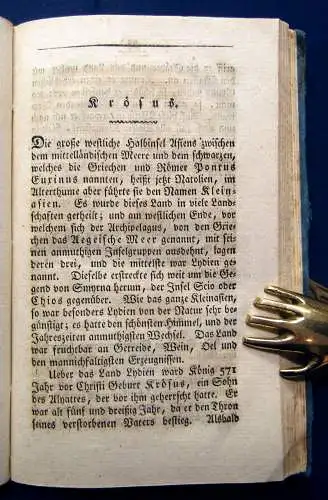 Krösus.
Die große westliche Halbinsel Asiens zwischen
dem mittelländischen Meere und dem schwarzen,
welches die Griechen und Römer Pontus
Euxinus nannten, heißt jetzt Natolien, im
Alterthume aber führte sie den Namen Klein-
asien. Es wurde dieses Land in viele Land-
schaften getheilt; und am westlichen Ende, vor
welchem sich der Archipelagus, von den Grie-
chen das Aegeische Meer genannt, mit sei-
nen anmuthigen Inselgruppen ausdehnt, lagen
deren drei, und die mittelste war Lydien ge-
nannt. Dieselbe erstreckte sich weit um die Ge-
gend von Smyrna herum, der Insel Scio oder
Chios gegenüber. Wie das ganze Kleinasien,
so war besonders Lydien von der Natur sehr be-
günstigt; es hatte den schönsten Himmel, und der
Jahreszeiten anmuthigsten Wechsel. Das Land
war fruchtbar an Getreide, Wein, Oel und
den mannichfaltigsten Erzeugnissen.
Ueber das Land Lydien ward König 571
Jahr vor Christi Geburt Krösus, ein Sohn
des Alyattes, der vor ihm geherrscht hatte. Er
war alt fünf und dreißig Jahr, da er den Thron
seines verstorbenen Vaters bestieg. Alsbald